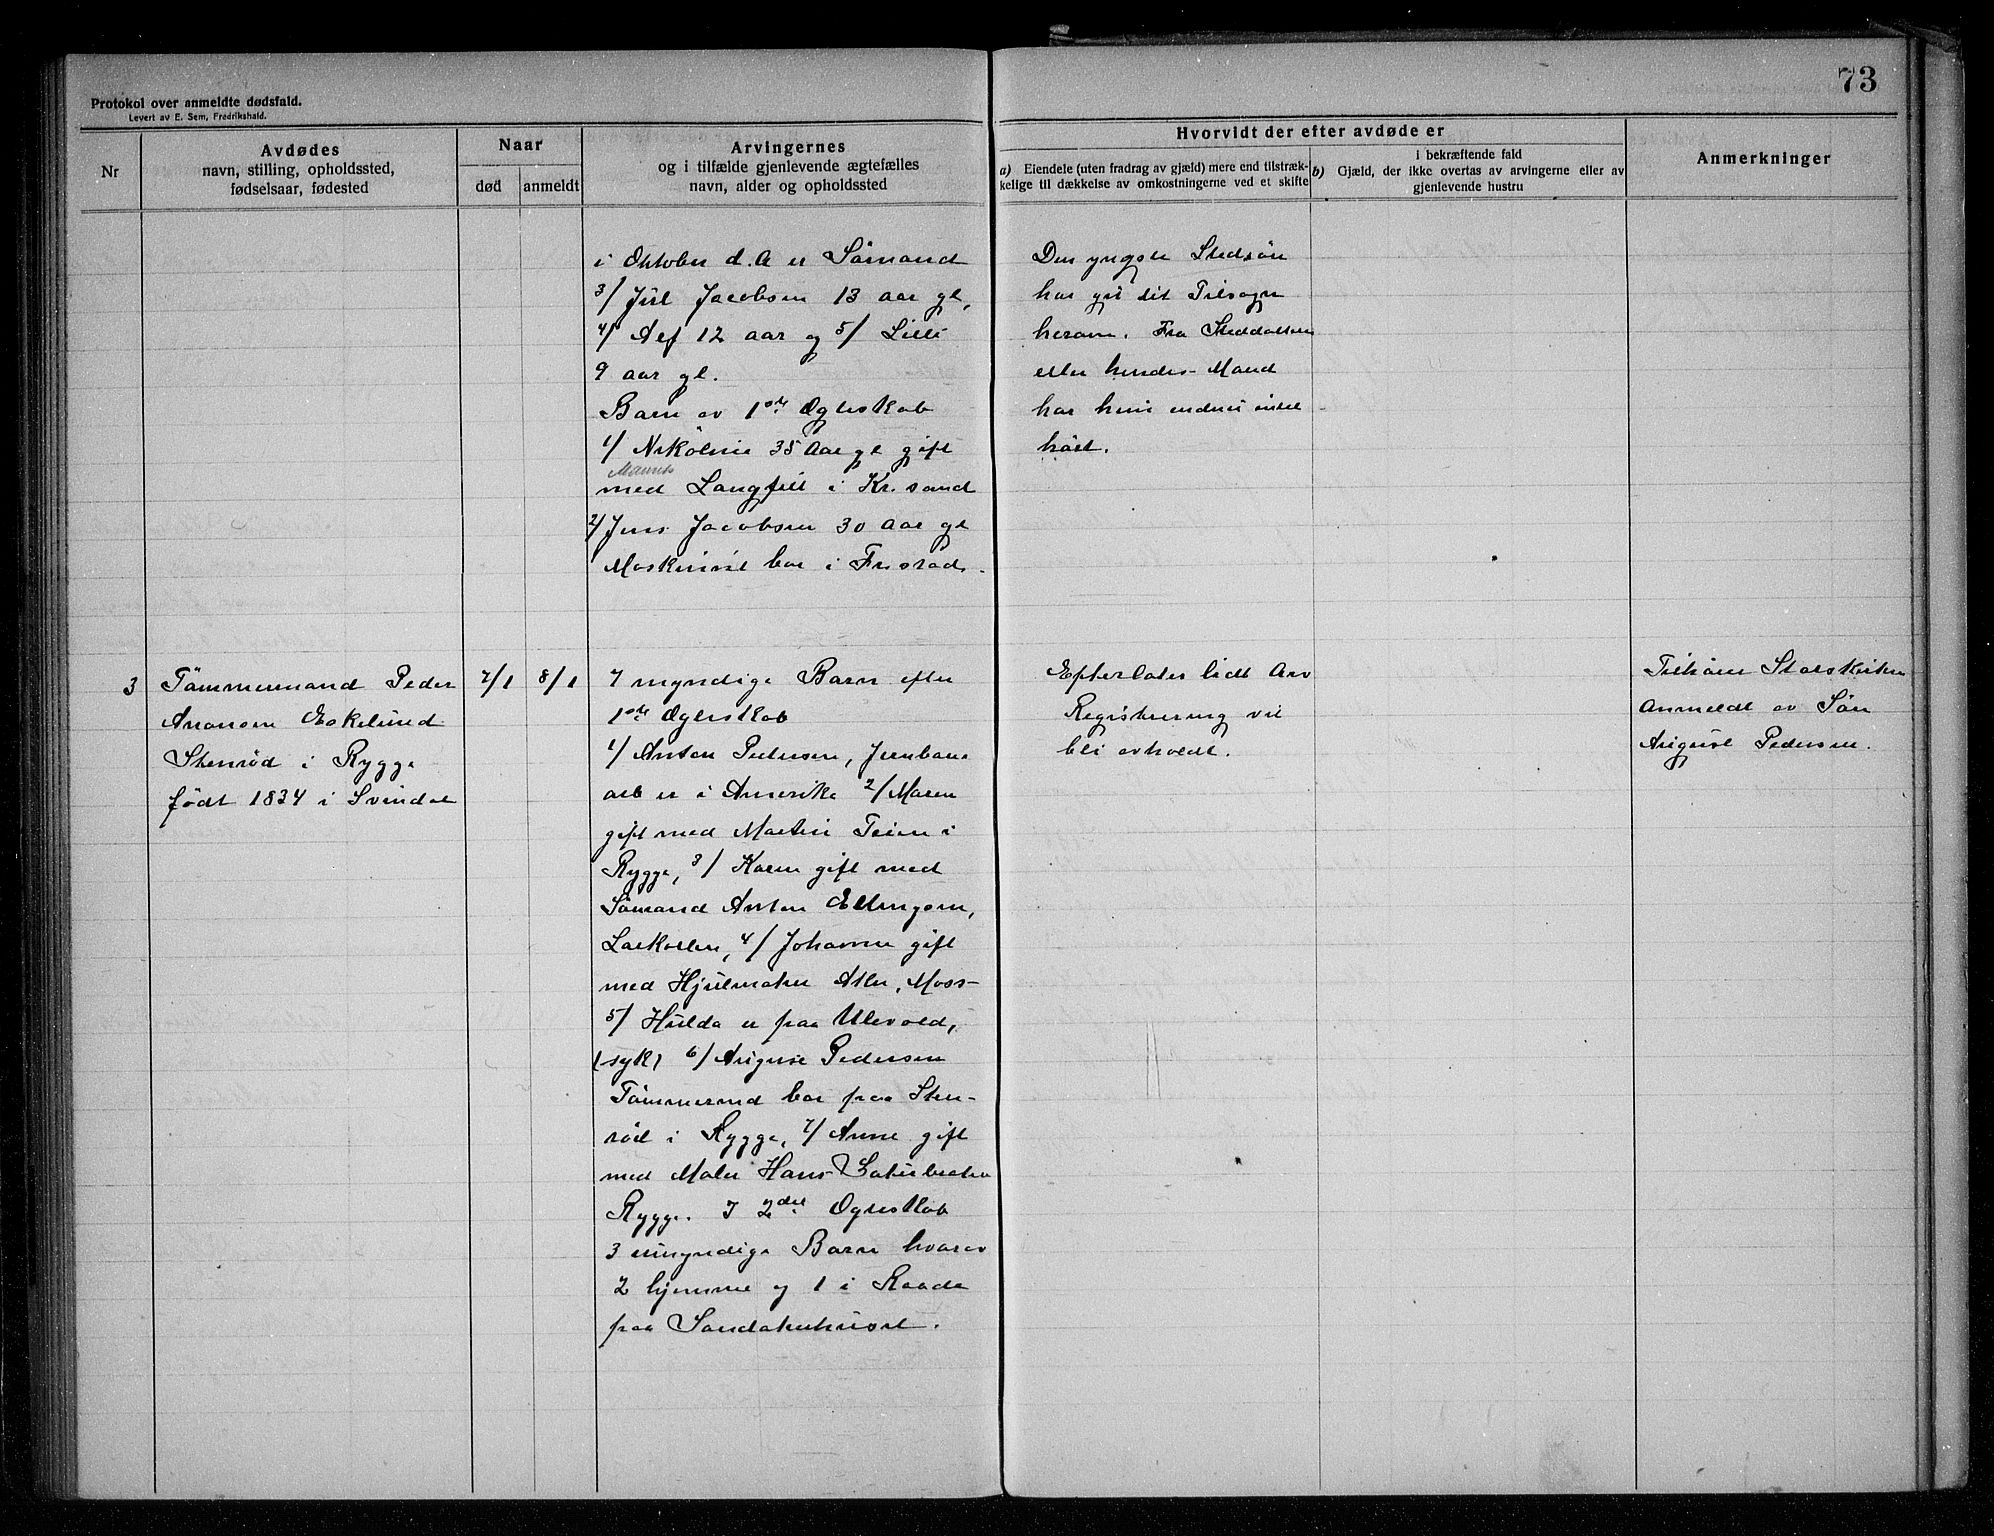 73
Protokol over anmeldte dødsfald.
Levert av E. Sem, Fredrikshald.
Nr
Avdødes
navn, stilling, opholdssted,
fødselsaar, fødested
Naar
død
anmeldt
Arvingernes
og i tilfælde gjenlevende ægtefælles
navn, alder og opholdssted
Hvorvidt der efter avdøde er
a) Eiendele (uten fradrag av gjæld) mere end tilstræk-
kelige til dækkelse av omkostningerne ved et skifte
i bekræftende fald
b) Gjæld, der ikke overtas av arvingerne eller av
gjenlevende hustru
Anmerkninger
i Oktober d.A er Sömand
3/ Juel Jacobsen 13 aar gl,
4/ Alf 12 aar og 5/ Lilli
9 aar gl.
Barn av 1ste Ægteskab
1/ Nikoline 35 Aar gl gift
med Langfell i Kr.sand
2/ Jens Jacobsen 30 Aar gl
Maskinist bor i Fr.stad.
Den yngste Stedsön
har git sit Tilsagn
herom. Fra Steddatteren
eller hendes Mand
har hun endnu intet
hört.
3
Tömmermand Peder
Aronsen Eskelund
Stenröd i Rygge
födt 1834 i Svindal
7/1
8/1
7 myndige Barn efter
1ste Ægteskab
1/ Anton Pedersen, Jernbane
arb er i Amerika 2/ Maren
gift med Martin Teien i
Rygge, 3/ Karen gift med
Sömand Anton Ellingsen,
Larkollen, 4/ Johanne gift
med Hjulmaker Aker, Moss-
5/ Hulda er paa Ullevold,
(syk) 6/ August Pedersen
Tömmermd bor paa Sten-
röd i Rygge, 7/ Anne gift
med Maler Hans
Rygge. I 2det Ægteskab
3 umyndige Barn hvorav
2 hjemme og 1 i Raade
paa Sandakerhuset.
Efterlater lidt Arv
Registrering vil
bli avholdt.
Tilhörer Statskirken
Anmeldt av Sön
August Pedersen.